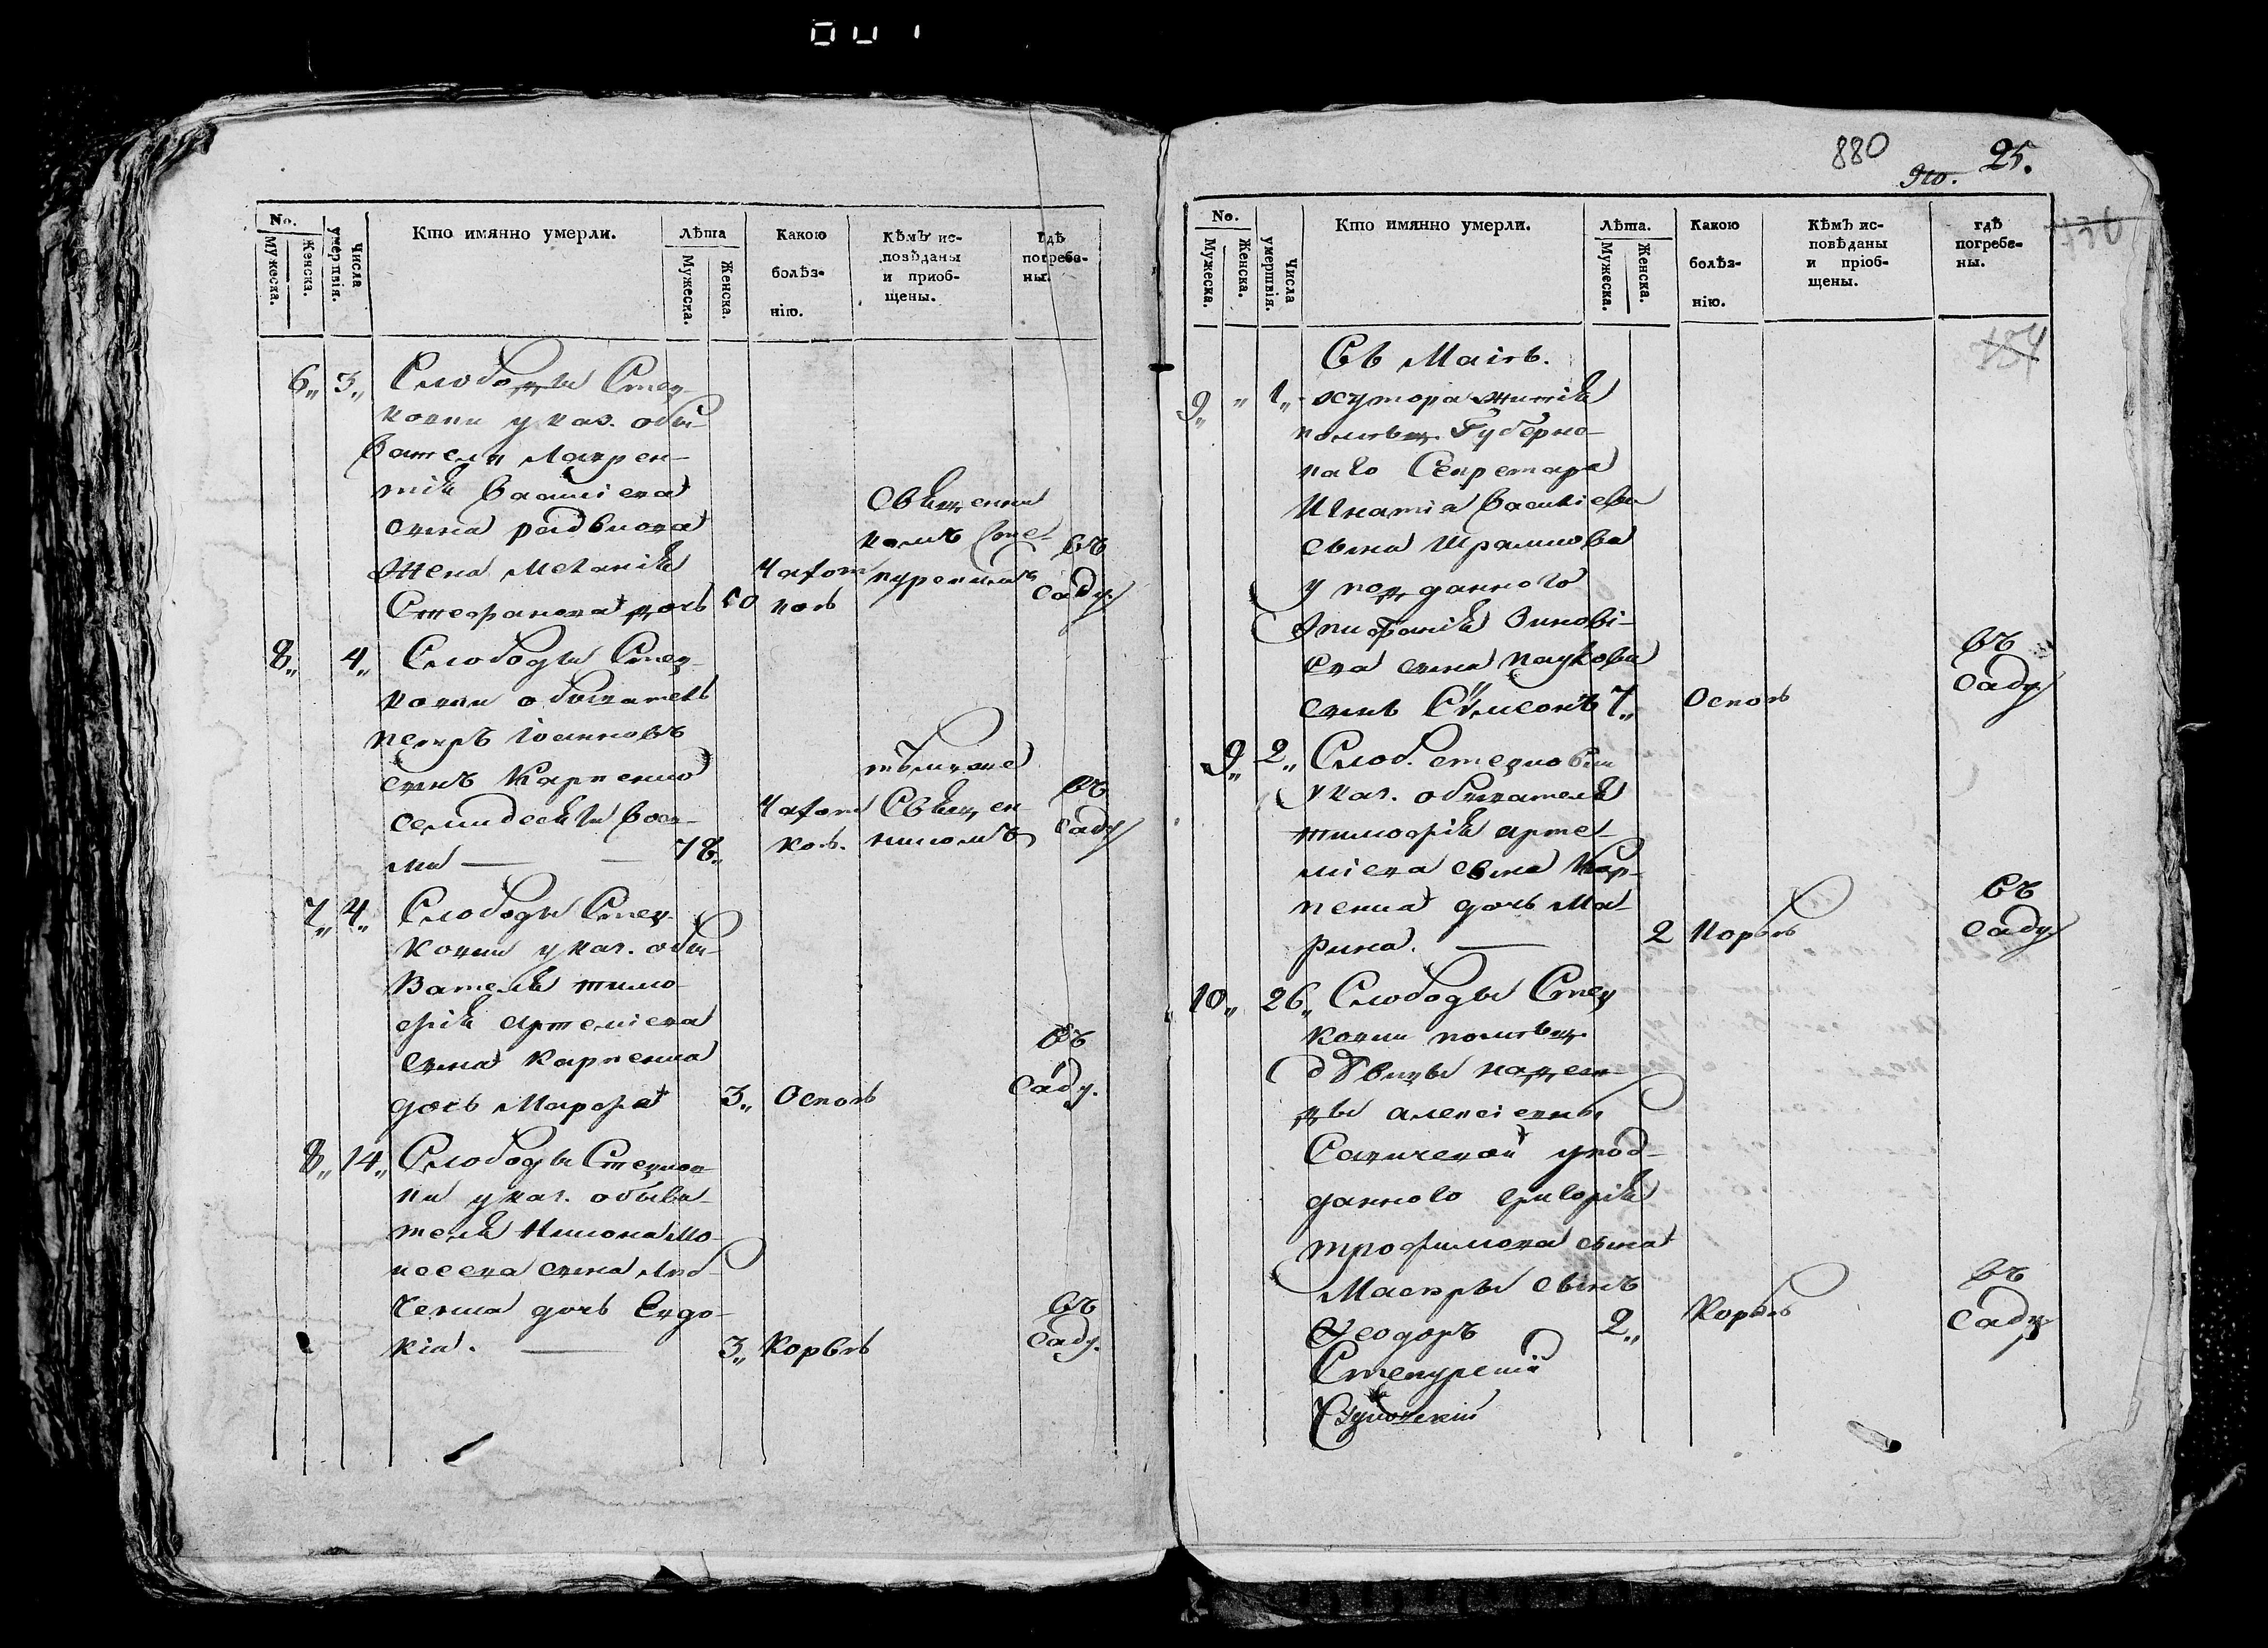 No.
Мужеска.
Женска.
Числа умертвія.
Кто имянно умерли.
Лѣта
Мужеска.
Женска.
Какою
болѣз-
нію.
Кѣмъ ис-
повѣданы
и приоб-
щены.
Гдѣ
погребе-
ны.
6,, 3,, Слободы Стец-
ковки указ. обы-
вателя Лаврен-
тія Васліева
сына
жена Меланія
Стефанова дочь 50
Чахот
кою
Священни
комъ Сте-
пурскимъ
въ
саду
8,, 4,, Слободы Стец-
ковки обыватель
петръ Іоанновъ
сынъ Карпенко
семидесяти вось-
ми — — 78,,
Чахот
кою.
тѣмже
Священ
никомъ
въ
саду
7,, 4,, Слободы Стец-
ковки указ. обы-
вателя тимо-
фія Артеміева
сына карпенка
дочь Марфа 3,, Оспою
въ
саду.
8,, 14,, Слободы Стецков-
ки указ. обыва-
теля Никона Мо-
исеева сына
дочь Евдо-
кія. — 3,, Корью
въ
саду.
880
910. 25.
736
No.
Мужеска.
Женска.
Числа умертвія.
Кто имянно умерли.
Лѣта.
Мужеска.
Женска.
Какою
болѣз-
нію.
Кѣмъ ис-
повѣданы
и пріоб-
щены.
гдѣ
погребе-
ны.
754
Въ Маіѣ.
9,, ,, 1,, хутора
помѣщ. Губернс-
каго Секретара
Игнатіа Василіева
сына Шрамкова
у подданного
Епифанія Зинові-
ева сына паукова
сынъ Сѵмеонъ 7,, Оспою
въ
саду
9,, 2,, Слоб. стецковки
указ. обывателя
тимофія арте-
міева сына Кар-
пенка дочь Ма-
рина. — 2 Корью
въ
саду
10,, 26,, Слободы Стец
ковки помѣщ.
дѣвицы надеж-
ды алексіевны
у под-
данного григорія
трофимова сына
сынъ
Ѳеодоръ 2,, Корью
въ
саду
Степурскій